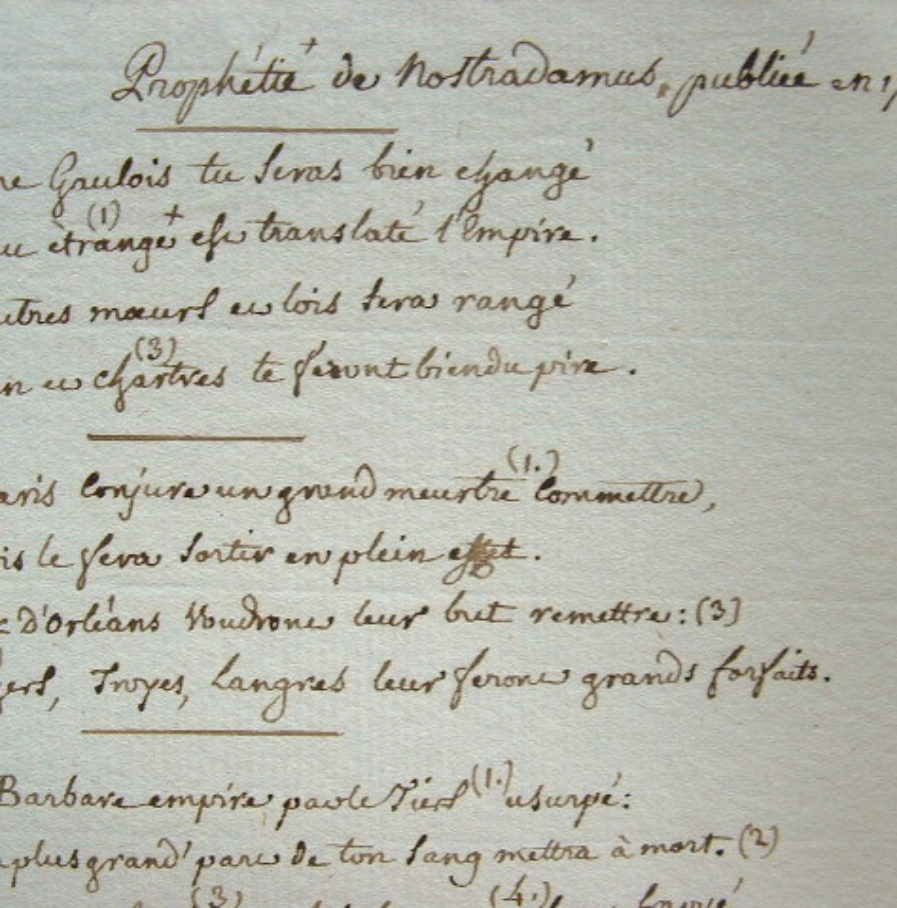 Prophétie + de Nostradamus, publiée en 1
Gaulois tu seras bien changé
(1) +
étrangé est translaté l'Empire.
mœurs et lois sera rangé
(3)
et chartres te feront bien du pire.
(1.)
conjure un grand meurtre commettre,
le fera sortir en plein effet.
d'Orléans voudront leur but remettre : (3)
Troyes, Langres leur feront grands forfaits.
Barbare empire par le Tiers (1.) usurpé :
plus grand' part de ton sang mettra à mort. (2)
(3) (4.)